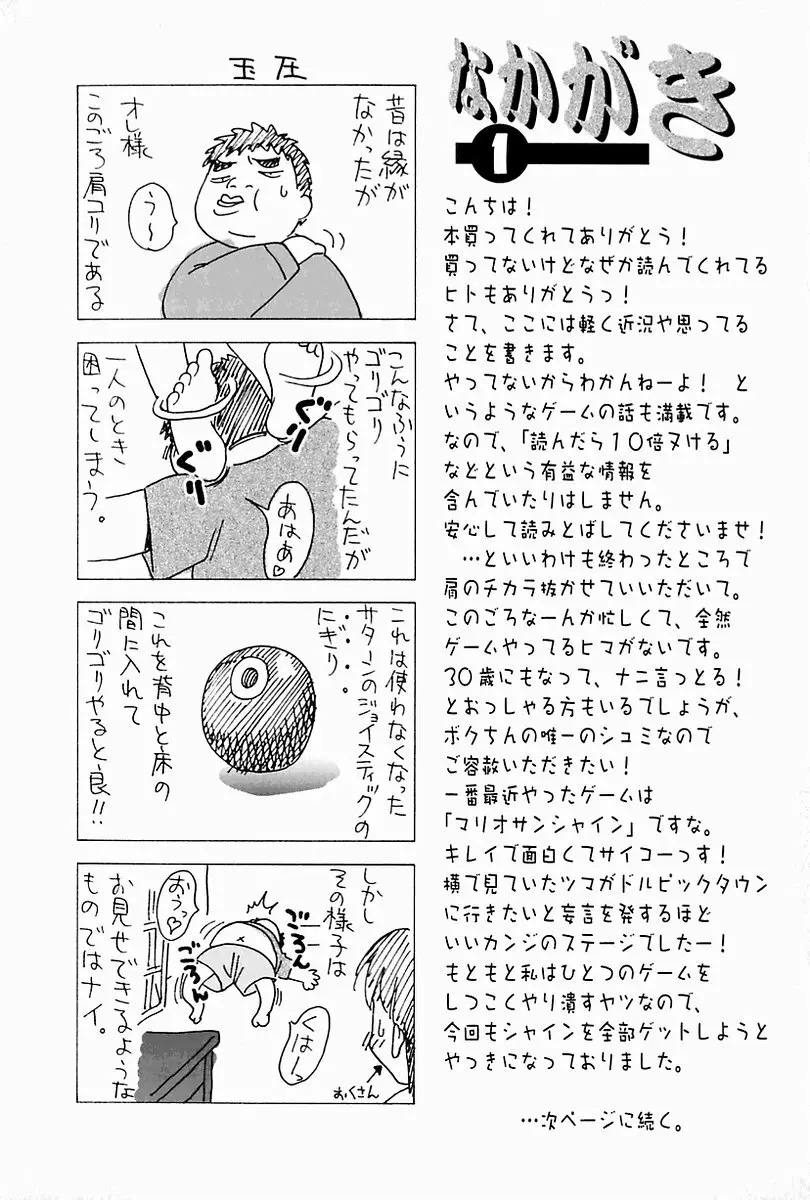 なかがき
1
こんちは！
本買ってくれてありがとう！
買ってないけどなぜか読んでくれてる
ヒトもありがとうっ！
さて、ここには軽く近況や思ってる
ことを書きます。
やってないからわかんねーよ！　と
いうようなゲームの話も満載です。
なので、「読んだら１０倍ヌける」
などという有益な情報を
含んでいたりはしません。
安心して読みとばしてくださいませ！
…といいわけも終わったところで
肩のチカラ抜かせていいただいて。
このごろなーんか忙しくて、全然
ゲームやってるヒマがないです。
30歳にもなって、ナニ言っとる！
とおっしゃる方もいるでしょうが、
ボクちんの唯一のシュミなので
ご容赦いただきたい！
一番最近やったゲームは
「マリオサンシャイン」ですな。
キレイで面白くてサイコーっす！
横で見ていたツマがドルピックタウン
に行きたいと妄言を発するほど
いいカンジのステージでしたー！
もともと私はひとつのゲームを
しつこくやり潰すヤツなので、
今回もシャインを全部ゲットしようと
やっきになっておりました。
…次ページに続く。
玉圧
昔は縁が
なかったが
オレ様
このごろ肩コリである
う〜
こんなふうに
ゴリゴリ
やってもらってたんだが
一人のとき
困ってしまう。
ぐり
ぐり
あはあ♡
これは使わなくなった
サターンのジョイスティックの
にぎり。
これを背中と床の
間に入れて
ゴリゴリやると良!!
しかし
その様子は
お見せできるような
ものではナイ。
おうっ♡
ごろん
ごろん
くはーっ
おくさん